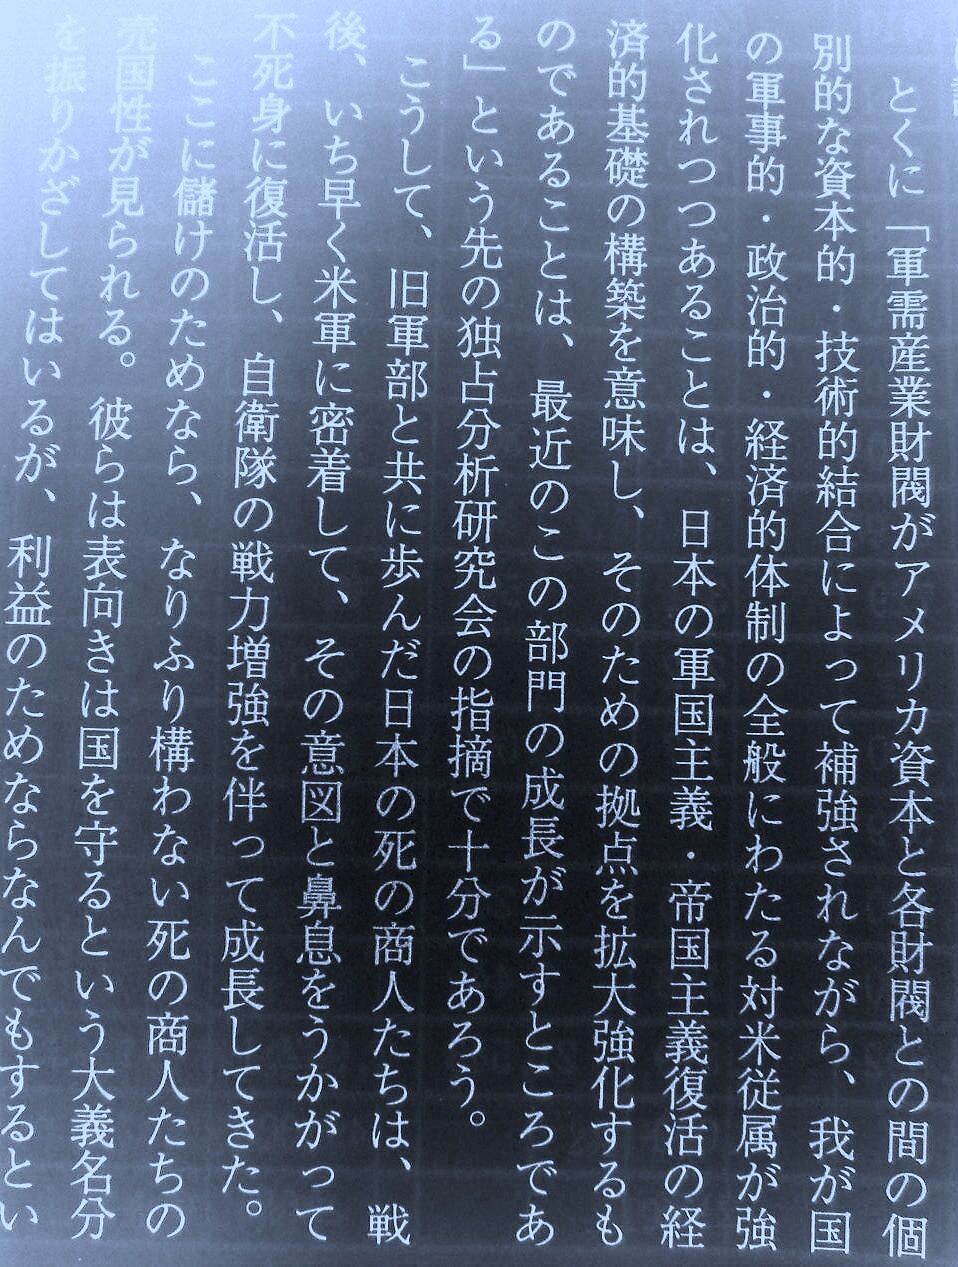 とくに「軍需産業財閥がアメリカ資本と各財閥との間の個
別的な資本的・技術的結合によって補強されながら、我が国
の軍事的・政治的・経済的体制の全般にわたる対米従属が強
化されつつあることは、日本の軍国主義・帝国主義復活の経
済的基礎の構築を意味し、そのための拠点を拡大強化するも
のであることは、最近のこの部門の成長が示すところであ
る」という先の独占分析研究会の指摘で十分であろう。
こうして、旧軍部と共に歩んだ日本の死の商人たちは、戦
後、いち早く米軍に密着して、その意図と鼻息をうかがって
不死身に復活し、自衛隊の戦力増強を伴って成長してきた。
ここに儲けのためなら、なりふり構わない死の商人たちの
売国性が見られる。彼らは表向きは国を守るという大義名分
を振りかざしてはいるが、利益のためならなんでもするとい